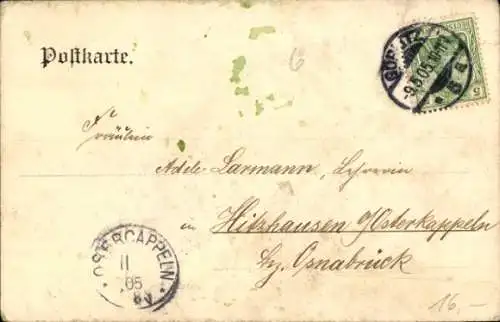 Postkarte.
6
GÖRLITZ
-9.5.05.10-11V
* 5 a
5
Fräulein
Adele Larmann, Lehrerin
in Hitzhausen b/Osterkappeln
bz. Osnabrück
OSTERCAPPELN
11
05
16,-